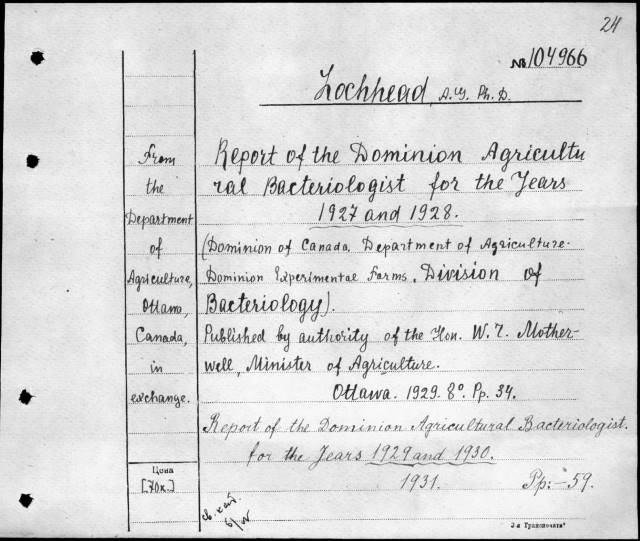 24
№ 104966
Lochhead, A. G. Ph. D.
From
the
Department
of
Agriculture,
Ottawa,
Canada,
in
exchange.
Report of the Dominion Agricultu
ral Bacteriologist for the Years
1927 and 1928.
(Dominion of Canada. Department of Agriculture.
Dominion Experimental Farms. Division of
Bacteriology).
Published by authority of the Hon. W. T. Mother-
well, Minister of Agriculture.
Ottawa. 1929. 8° Pp. 34.
Report of the Dominion Agricultural Bacteriologist.
for the Years 1929 and 1930.
1931. Pp: - 59.
Цена
[70к.]